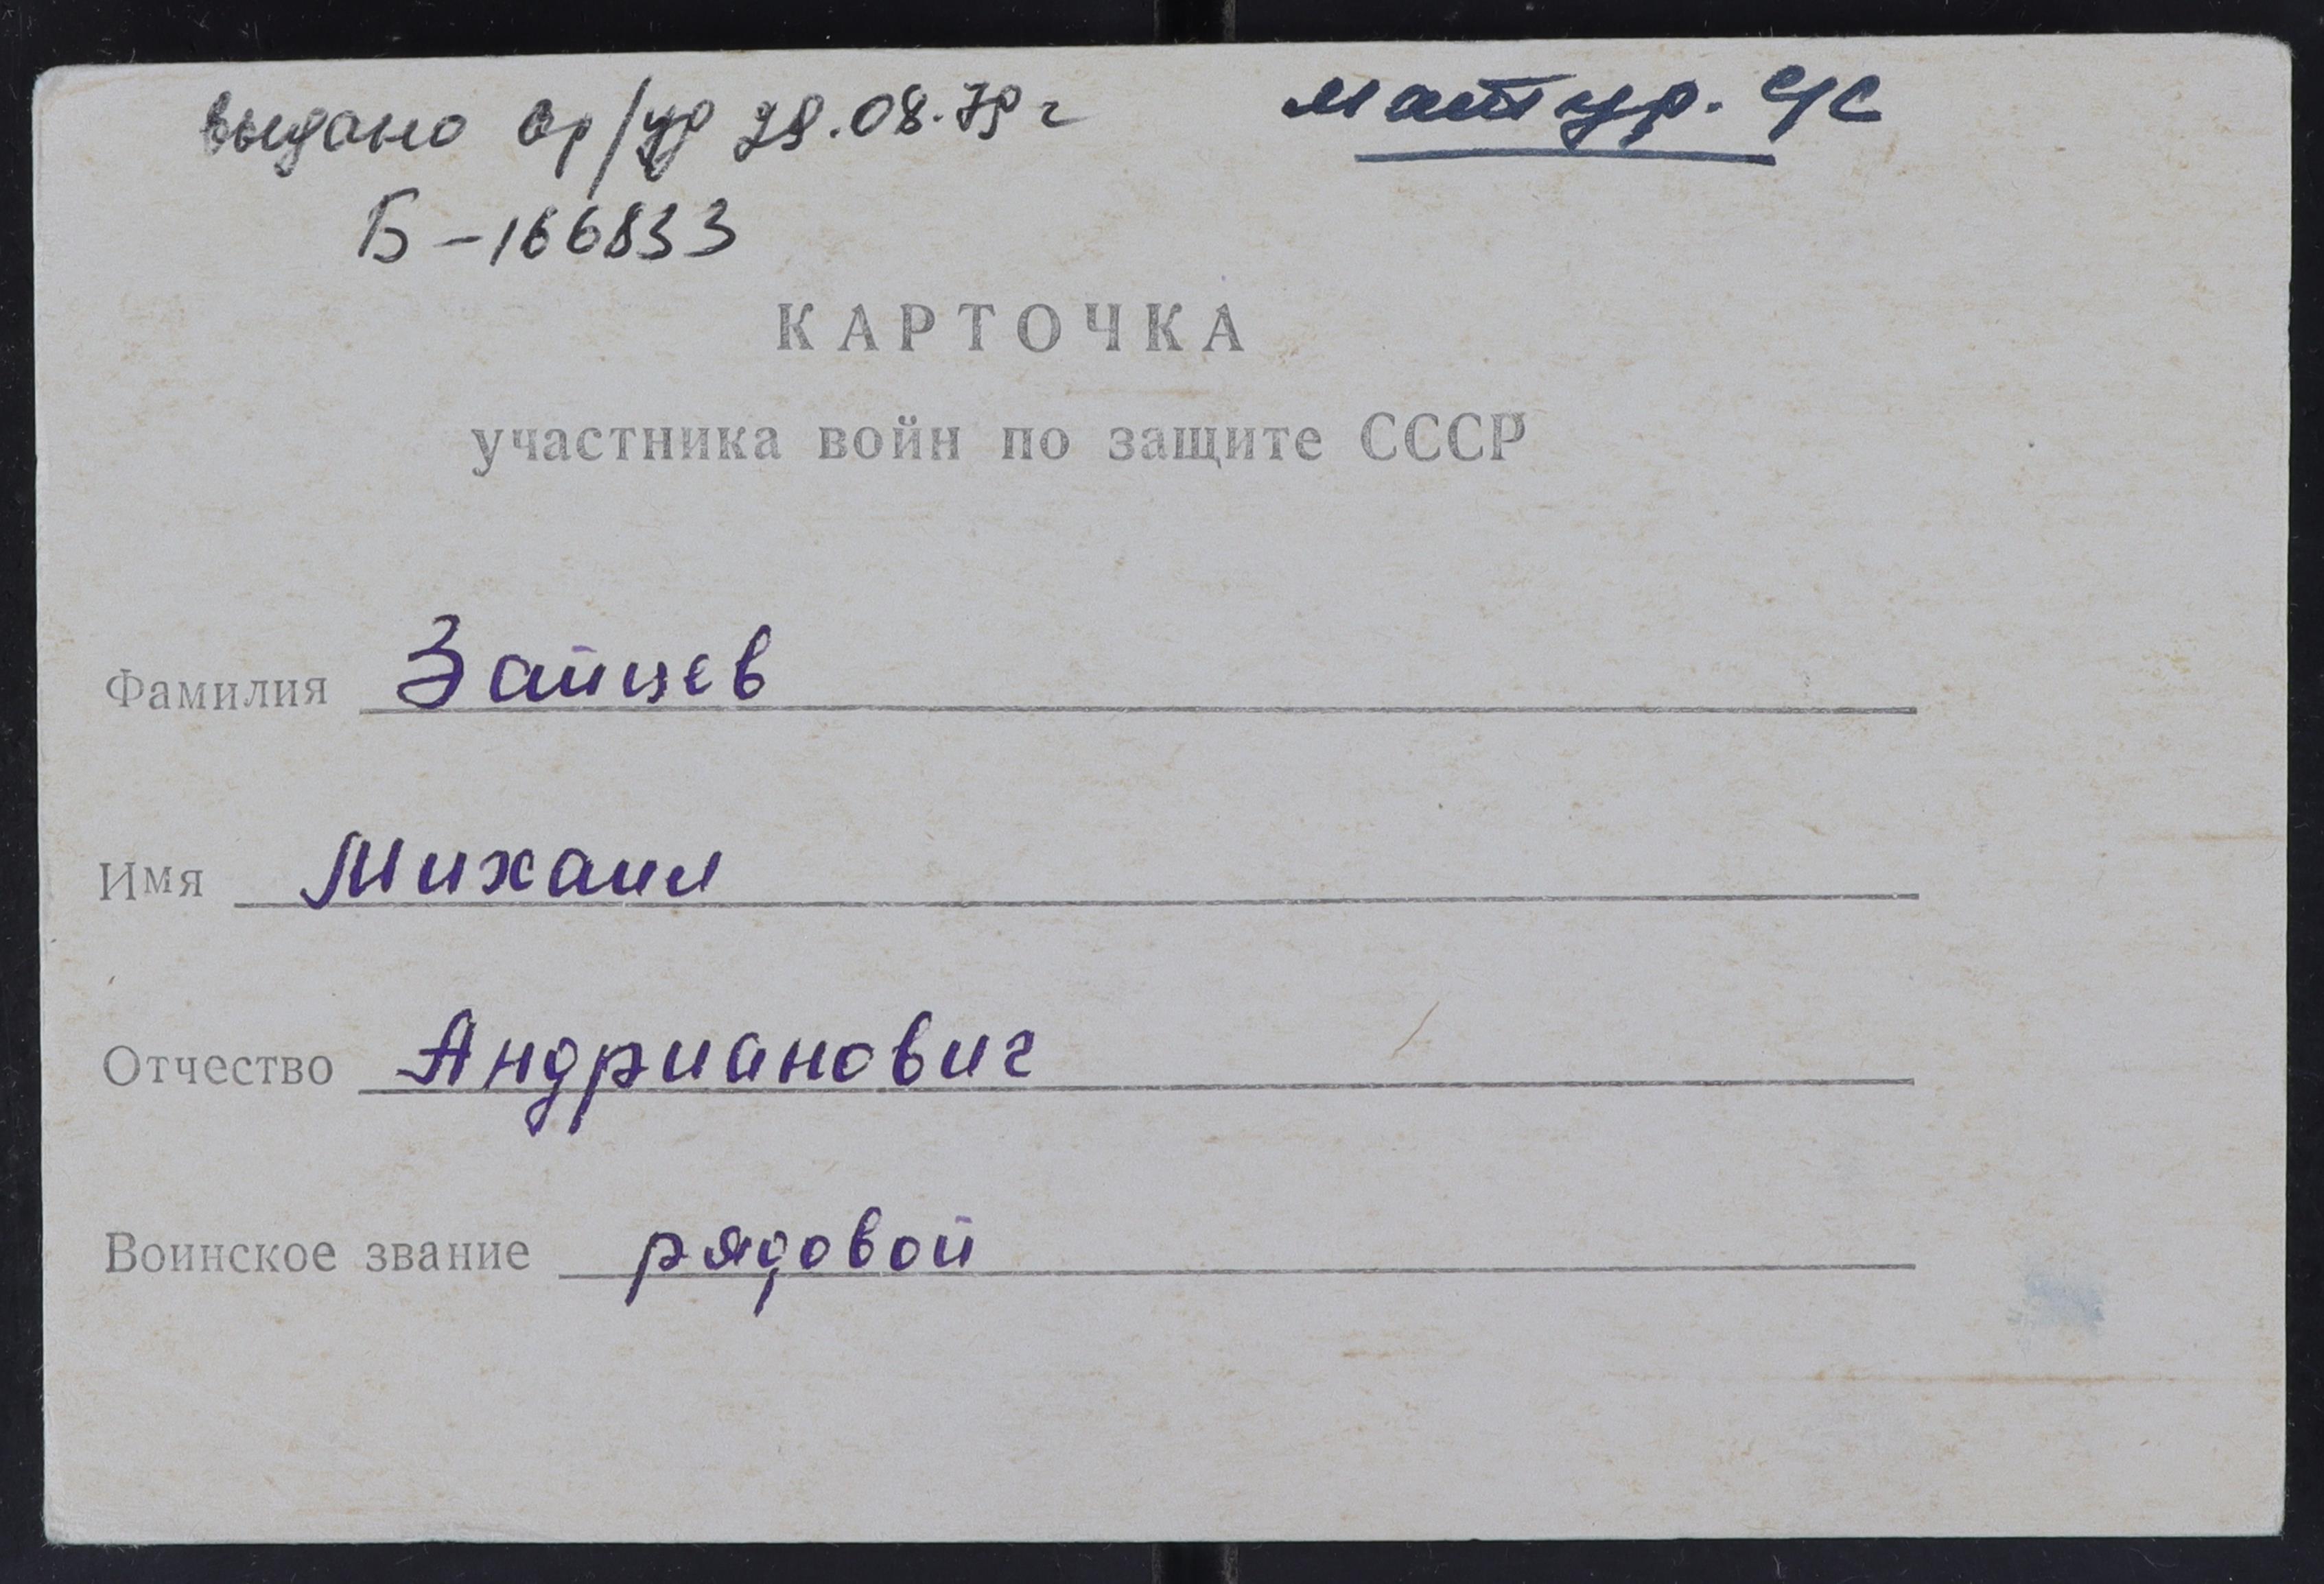 выдано вр/уд 29.08.79 г
Матур. с/с
Б-166833
КАРТОЧКА
участника войн по защите СССР
Фамилия Зайцев
Имя Михаил
Отчество Андрианович
Воинское звание рядовой